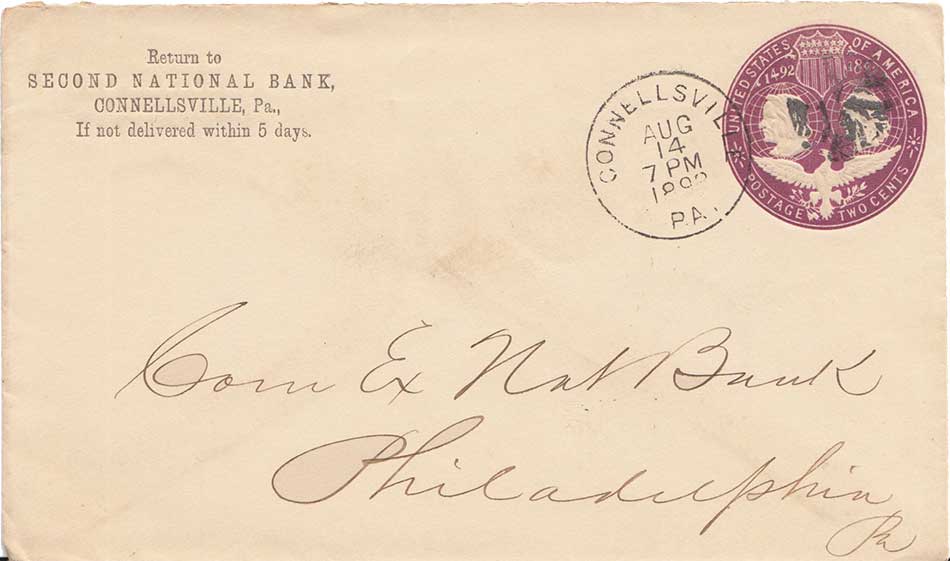 Return to
SECOND NATIONAL BANK,
CONNELLSVILLE, Pa.,
If not delivered within 5 days.
CONNELLSVILLE
AUG
14
7 PM
PA.
UNITED STATES OF AMERICA
1492
POSTAGE TWO CENTS
Corn Ex Nat Bank
Philadelphia
Pa